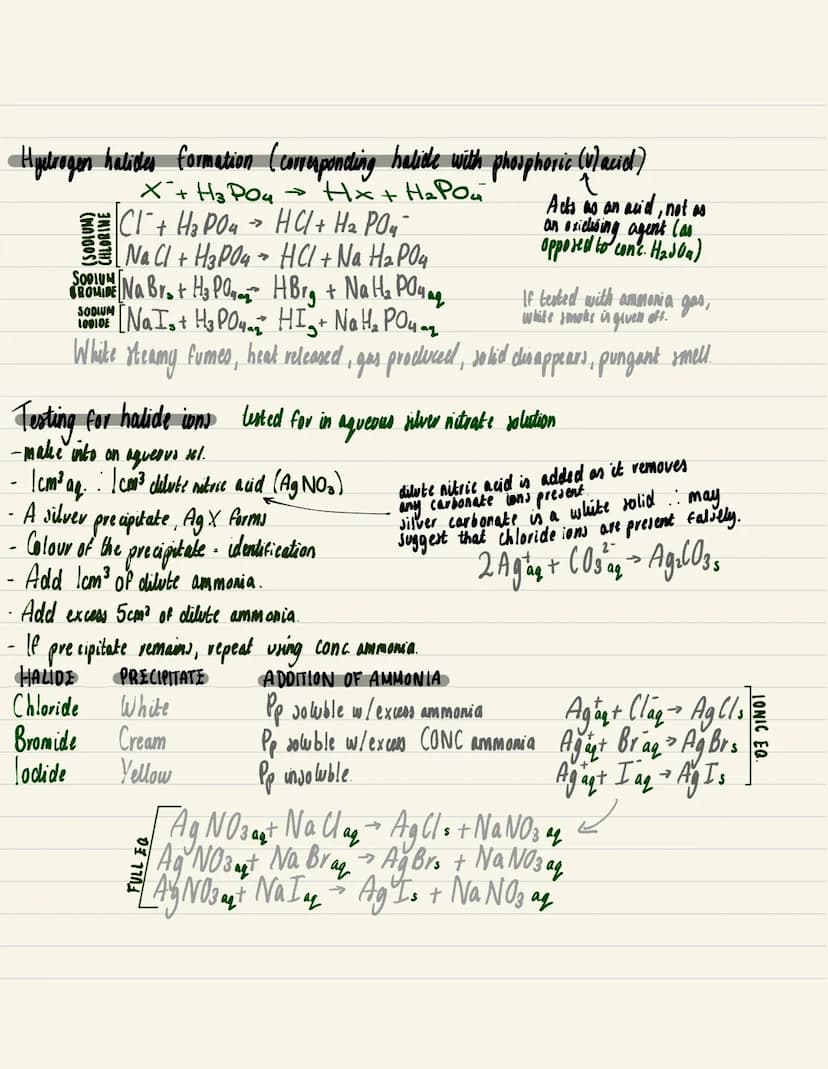 Hydrogen halides formation (corresponding halide with phosphoric (V) acid)
X⁻ + H₃PO₄ → HX + H₂PO₄⁻
Acts as an acid, not as
an oxidising agent (as
opposed to conc. H₂SO₄)
(SODIUM) CHLORINE
Cl⁻ + H₃PO₄ → HCl + H₂PO₄⁻
NaCl + H₃PO₄ → HCl + NaH₂PO₄
SODIUM BROMIDE
NaBr s + H₃PO₄ aq → HBr g + NaH₂PO₄ aq
SODIUM IODIDE
NaI s + H₃PO₄ aq → HI g + NaH₂PO₄ aq
If tested with ammonia gas,
white smoke is given off.
White steamy fumes, heat released, gas produced, solid disappears, pungant smell.
Testing for halide ions tested for in aqueous silver nitrate solution
- make into an aqueous sol.
- 1cm³ aq. : 1cm³ dilute nitric acid (AgNO₃)
- A silver precipitate, AgX forms
- Colour of the precipitate = identification
- Add 1cm³ of dilute ammonia.
- Add excess 5cm³ of dilute ammonia.
- If precipitate remains, repeat using conc ammonia.
dilute nitric acid is added as it removes
any carbonate ions present.
silver carbonate is a white solid ∴ may
suggest that chloride ions are present falsely.
2Ag⁺ aq + CO₃²⁻ aq → Ag₂CO₃ s
HALIDE PRECIPITATE ADDITION OF AMMONIA
Chloride White Pp soluble w/excess ammonia
Bromide Cream Pp soluble w/excess CONC ammonia
Iodide Yellow Pp insoluble.
Ag⁺ aq + Cl⁻ aq → AgCl s
Ag⁺ aq + Br⁻ aq → AgBr s
Ag⁺ aq + I⁻ aq → AgI s
IONIC EQ.
FULL EQ
AgNO₃ aq + NaCl aq → AgCl s + NaNO₃ aq
AgNO₃ aq + NaBr aq → AgBr s + NaNO₃ aq
AgNO₃ aq + NaI aq → AgI s + NaNO₃ aq